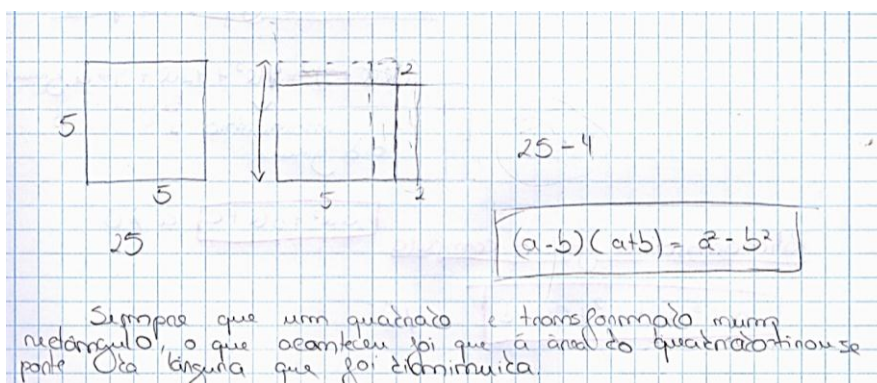 2
5
5
5
2
25 - 4
25
(a-b)(a+b) = a² - b²
Sempre que um quadrado é transformado num
rectângulo, o que aconteceu foi que à área do quadrado tirou se
parte da largura que foi diminuida.